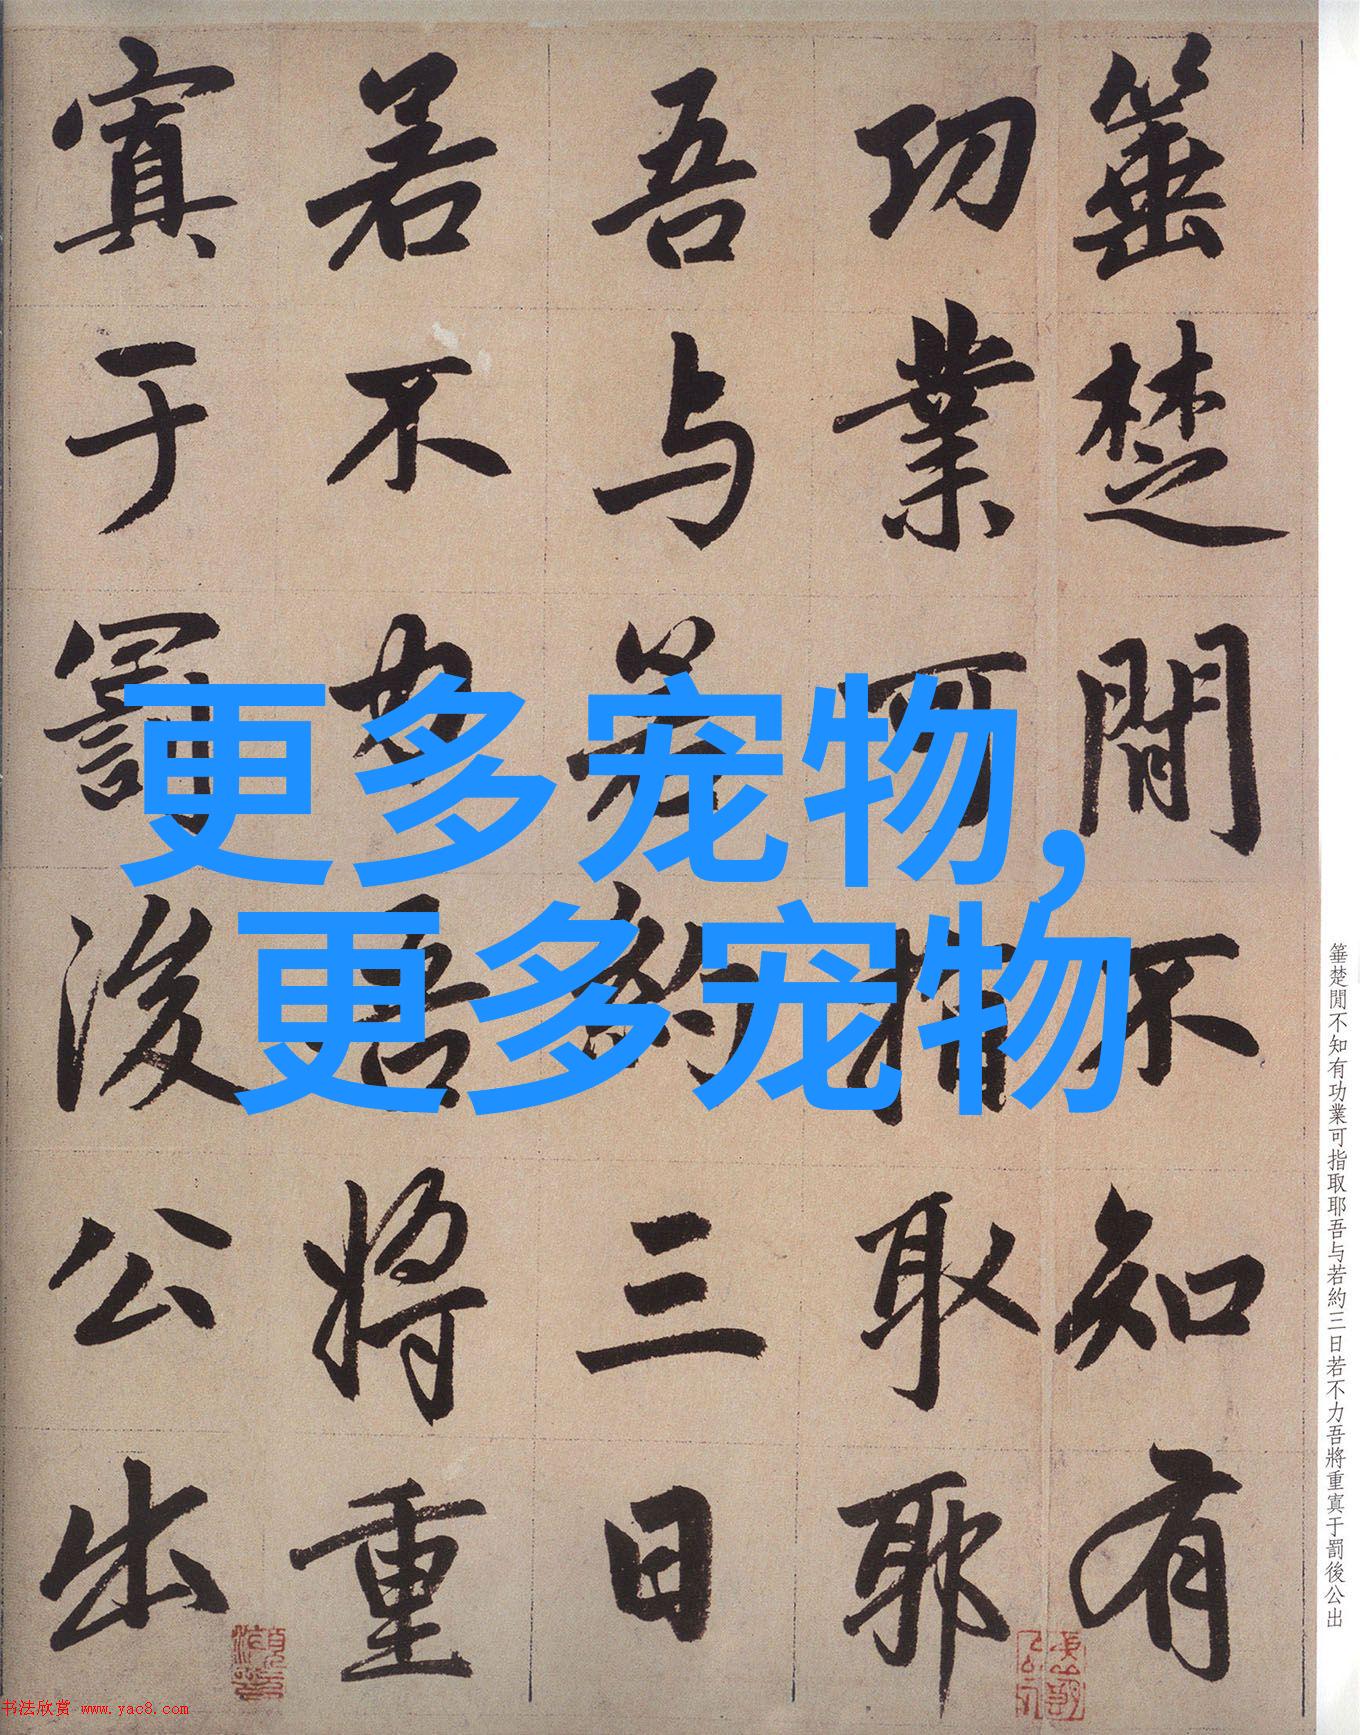 箠楚間不知有
功業可指取耶
吾与若約三日
若不力吾將重
寘于罰後公出
更多宠物,
更多宠物
箠楚間不知有功業可指取耶吾与若約三日若不力吾將重寘于罰後公出
书法欣赏 www.yac8.com